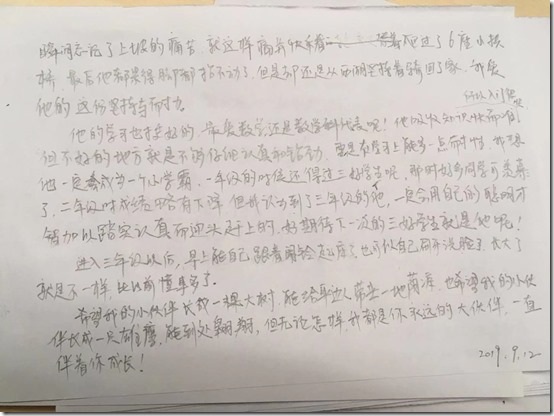 瞬间忘记了上坡的痛苦,就这样痛并快乐着 骑过了6座小拱
桥,最后他都累得脚都抬不动了,但是却还是从西湖坚持着骑回了家,
他的这份坚持与耐力。
他的学习也挺好的,最爱数学还是数学科代表呢!他吸收知识快而
但不好的地方就是不够仔细认真和好动,要是在学习上能多一点耐性,我想
他一定会成为一个小学霸,一年级的时候还得过三好学生呢,那时好多同学可羡慕
了,二年级时成绩略有下降,但我认为到了三年级的他,一定会用自己的聪明才
智加以踏实认真而迎头赶上的,好期待下一次的三好学生就是他呢!
进入三年级以后,早上能自己跟着闹铃起床了,也可以自己 洗脸了,长大了
就是不一样,比以前懂事多了。
希望我的小伙伴长成一棵大树,能给身边人带去一地荫凉,也希望我的小伙
伴长成一只雄鹰,能到处翱翔,但无论怎样,我都是你永远的大伙伴,一直
伴着你成长!
2019.9.12